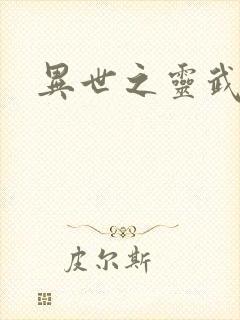 異世之靈武
皮尔斯